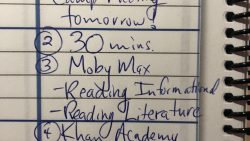 Camp Meeting
tomorrow?
② 30 mins.
③ Moby Max
-Reading Informational
-Reading Literature
④ Khan Academy